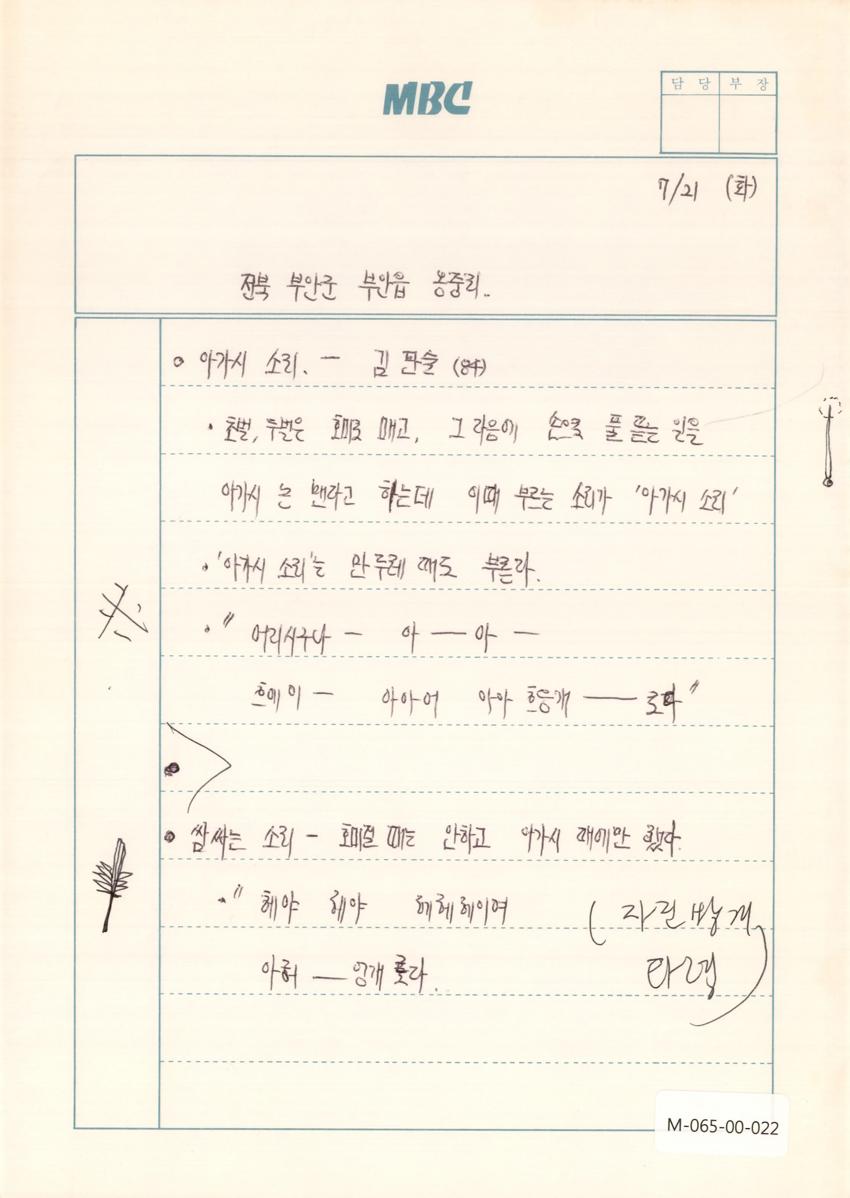 MBC
담 당 부 장
7/21 (화)
전북 부안군 부안읍 옹중리..
아가시 소리. - 김판술 (84)
· 초벌, 두벌은 호미로 매고, 그 다음에 손으로 풀 뜯는 일을
아가시 논 맨다고 하는데 이때 부르는 소리가 '아가시 소리'
· '아가시 소리'는 만두레 때도 부른다.
· " 어리시구나 - 아 — 아 -
흐에이 - 아아어 아아 흐응개 —— 로다 "
쌈 싸는 소리 - 호미질 때는 안하고 아가시 때에만 했다.
· " 헤야 헤야 헤헤헤이여 ( 자진방개
아허 — 엉개 롯다. 타령 )
M-065-00-022